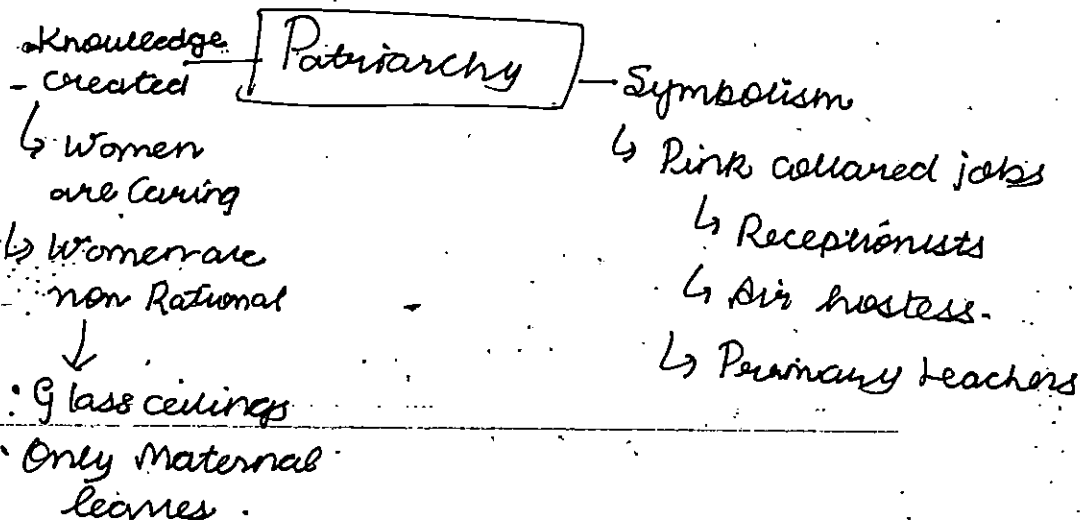 Patriarchy
Knowledge
- created
↳ Women
are Caring
↳ Women are
non Rational
↓
• Glass ceilings
• Only Maternal
leaves.
Symbolism
↳ Pink collared jobs
↳ Receptionists
↳ Air hostess.
↳ Primary teachers